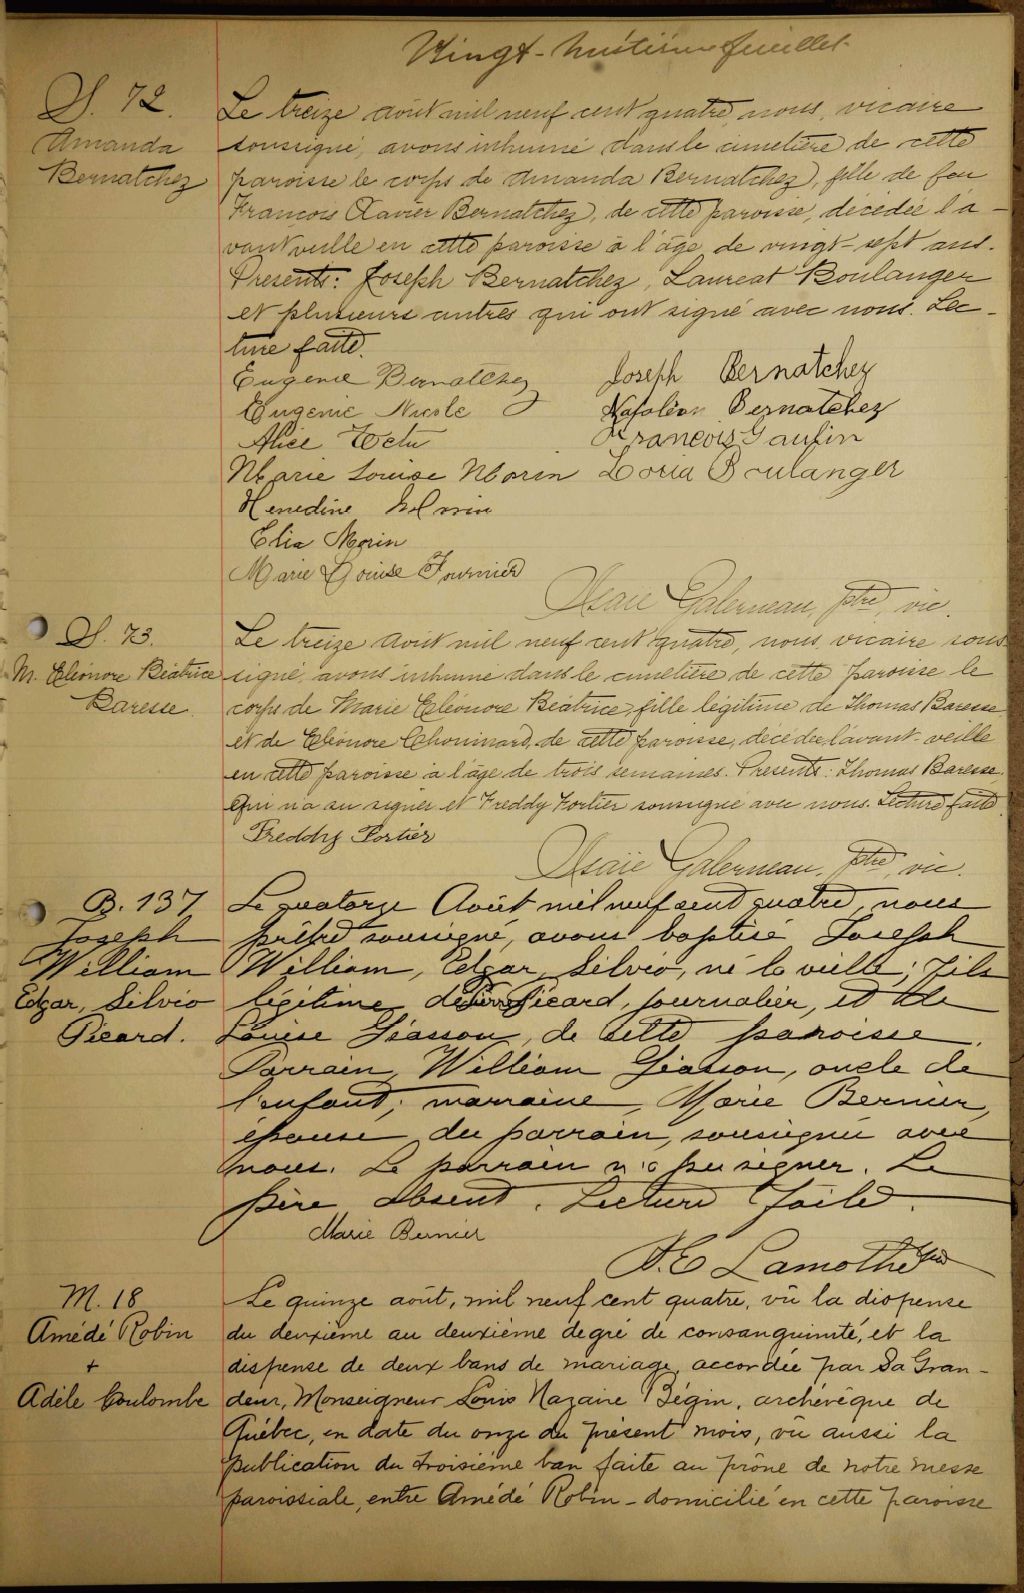 Vingt-huitième feuillet
S. 72.
Amanda
Bernatchez
Le treize août mil neuf cent quatre, nous, vicaire
soussigné, avons inhumé dans le cimetière de cette
paroisse le corps de Amanda Bernatchez, fille de feu
François Xavier Bernatchez, de cette paroisse, décédée l'a-
vant veille en cette paroisse à l'âge de vingt-sept ans.
Présents: Joseph Bernatchez, Laureat Boulanger
et plusieurs autres qui ont signé avec nous. Lec-
ture faite.
Eugenie Bernatchez Joseph Bernatchez
Eugenie Nicole Napoléon Bernatchez
Alice Tetu François Gaulin
Marie Louise Morin Loria Boulanger
Henedine Morin
Elia Morin
Marie Louise Fournier
Isaïe Galerneau, ptre, vic.
S. 73.
M. Eléonore Béatrice
Baresse.
Le treize août mil neuf cent quatre, nous, vicaire sous-
signé, avons inhumé dans le cimetière de cette paroisse le
corps de Marie Eléonore Béatrice, fille légitime de Thomas Baresse
et de Eléonore Chouinard, de cette paroisse, décédée, l'avant-veille
en cette paroisse à l'âge de trois semaines. Présents: Thomas Baresse,
qui n'a su signer et Freddy Fortier soussigné avec nous. Lecture faite.
Freddy Fortier
Isaïe Galerneau, ptre, vic.
B. 137
Joseph
William
Edgar, Silvio
Picard.
Le quatorze Août mil neuf cent quatre, nous
prêtre soussigné, avons baptisé Joseph
William, Edgar, Silvio, né la veille; fils
légitime de Picard, journalier, et de
Louise Giasson, de cette paroisse.
Parrain, William Giasson, oncle de
l'enfant; marraine, Marie Bernier,
épouse du parrain, soussignée avec
nous. Le parrain n'a pu signer. Le
père absent. Lecture faite.
Marie Bernier
J. E Lamothe ptre
M. 18
Amédé Robin
+
Adèle Coulombe
Le quinze août, mil neuf cent quatre, vû la dispense
du deuxième au deuxième degré de consanguinité, et la
dispense de deux bans de mariage, accordée par Sa Gran-
deur, Monseigneur Louis Nazaire Bégin, archévêque de
Québec, en date du onze du présent mois, vû aussi la
publication du troisième ban faite au prône de notre messe
paroissiale, entre Amédé Robin - domicilié en cette paroisse